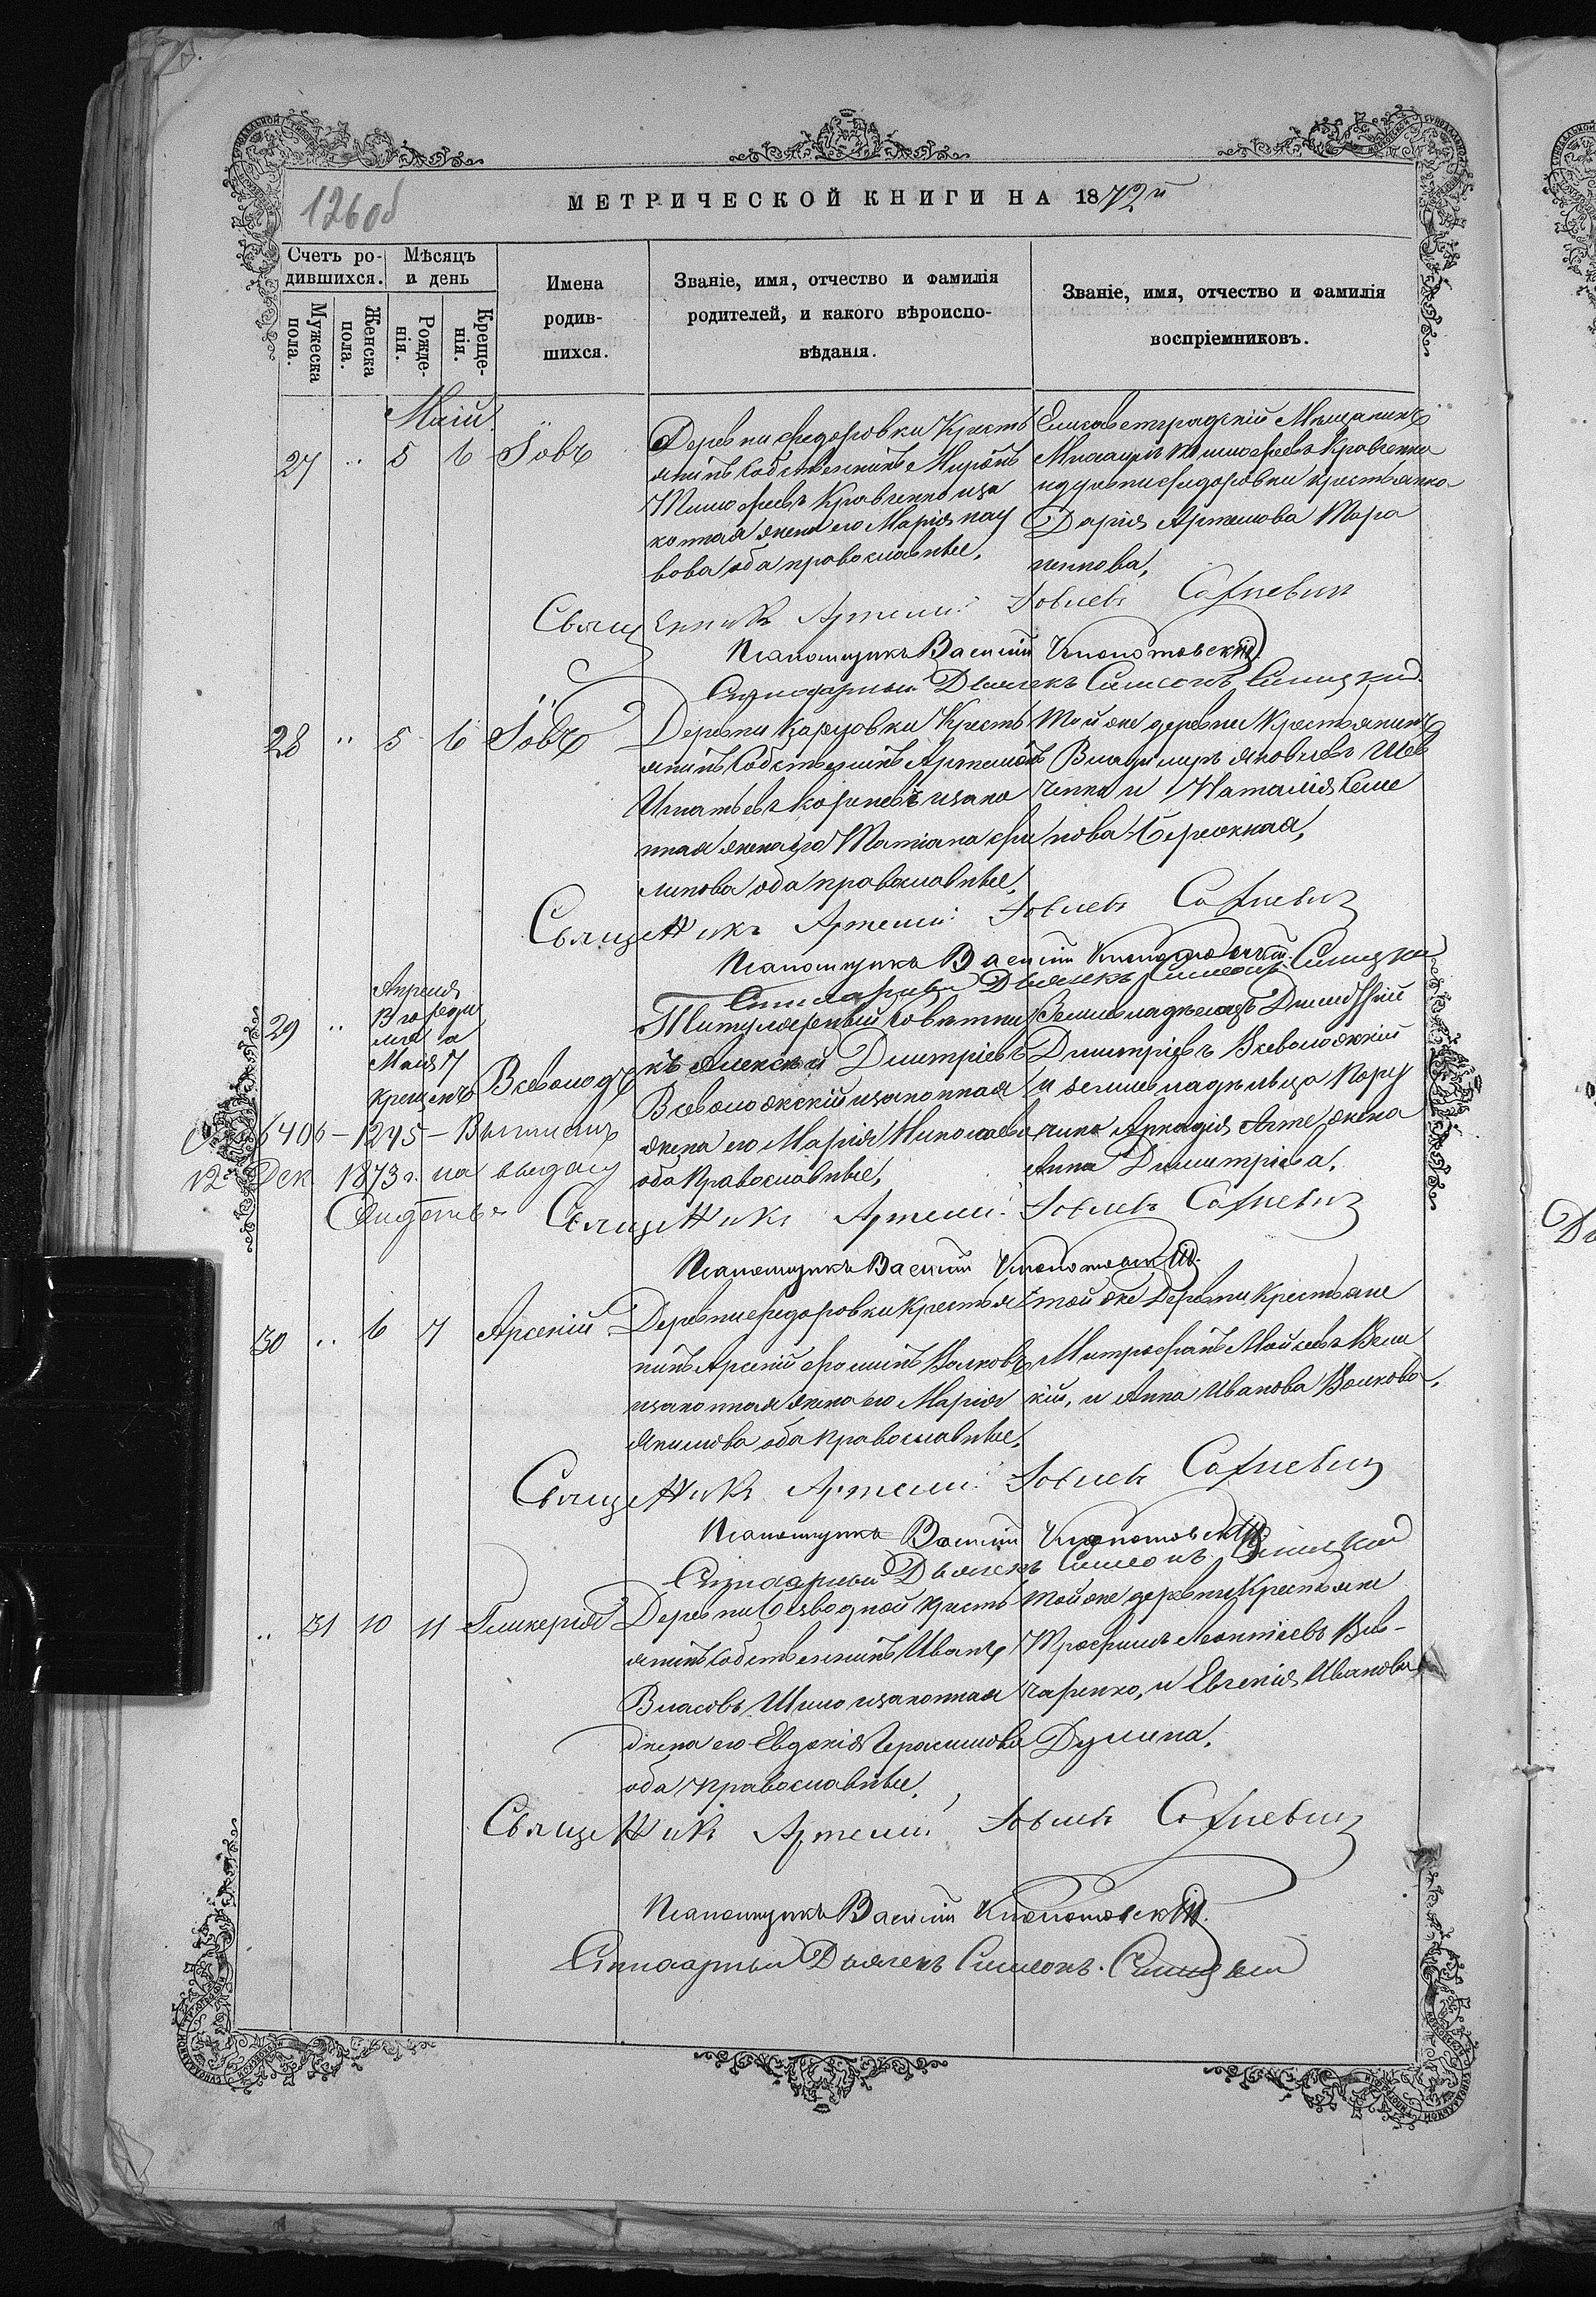 126об
МЕТРИЧЕСКОЙ КНИГИ НА 1872й
Счетъ ро-
дившихся.
Мѣсяцъ
и день
Мужеска
пола.
Женска
пола.
Рожде-
нія.
Креще-
нія.
Имена
родив-
шихся.
Званіе, имя, отчество и фамилія
родителей, и какого вѣроиспо-
вѣданія.
Званіе, имя, отчество и фамилія
воспріемниковъ.
Маій
27 " 5 6 Іовъ
Деревни Федоровки Кресть
янинъ собственникъ Миронъ
Тимофеевъ Кравченко иза
конная жена его Марія пау
лова оба православные.
Елисаветградскій Мѣщанинъ
Тимофеевъ Кравченко
и деревни Федоровки крестьянка
Дарія Артемова Тара
ненкова,
Священникъ Артемій Іовлевъ Сахневичъ
Псаломщикъ Василій Клопотовскій
Дьячекъ Симеонъ Синицкій
28 " 5 6 Іовъ
Деревни Карловки Кресть
янинъ Собственникъ Артемонъ
Игнатьевъ Корневъ изако
нная жена его Татіана фи
липова оба православные,
Той же деревни Крестьянинъ
Владимиръ Яковлевъ Шев
ченко и Наталія Семе
нова Бережная,
Священникъ Артемій Іовлевъ Сахневичъ
Псаломщикъ Василій Клопотовскій
Дьячекъ Симеонъ Синицкій
29 "
Апреля
Маія 7
крещенъ
Всеволодъ
Титулярный Совѣтни
къ Алексѣй Дмитріевъ
Всеволожскій изаконная
жена его Марія Николаева
оба Православные,
Землевладѣлецъ Димитрій
Дмитріевъ Всеволожскій
и землевладѣльца
Аркадія жена
Анна Димитріева.
6406 – 1245 – Выписанъ
12 Дек. 1873 г. на выдачу
Свидѣтел.
Священникъ Артемій Іовлевъ Сахневичъ
Псаломщикъ Василій Клопотовскій.
30 " 6 7 Арсеній
Деревни Федоровки Крестья
нинъ Арсеній Фоминъ Волковъ
изаконная жена его Марія
Якимова оба Православные.
той же Деревни Крестьяне
Митрофанъ Мойсеевъ Вели
кій, и Анна Иванова Волкова.
Священникъ Артемій Іовлевъ Сахневичъ
Псаломщикъ Василій Клопотовскій
Дьячекъ Симеонъ Синицкій
" 31 10 11 Гликерія
Деревни Безводной Кресть
янинъ Собственникъ Иванъ
Власовъ Шило изаконная
жена его Евдокія Герасимова
оба Православные.
той же деревни Крестьяне
Трофимъ Леонтіевъ Вив-
чаренко, и Евгенія Иванова
Думина.
Священникъ Артемій Іовлевъ Сахневичъ
Псаломщикъ Василій Клопотовскій.
Дьячекъ Симеонъ Синицкій